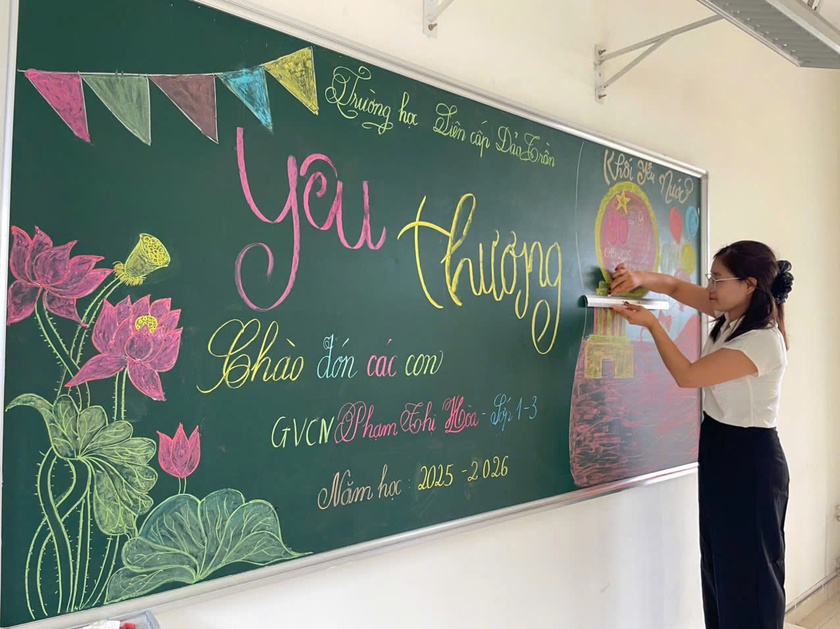 Trường học Liên cấp Dấu Trần
Yêu thương
Chào đón các con
GVCN Phạm Thị Hòa - Lớp 1-3
Năm học: 2025-2026
Khối Yêu Nước